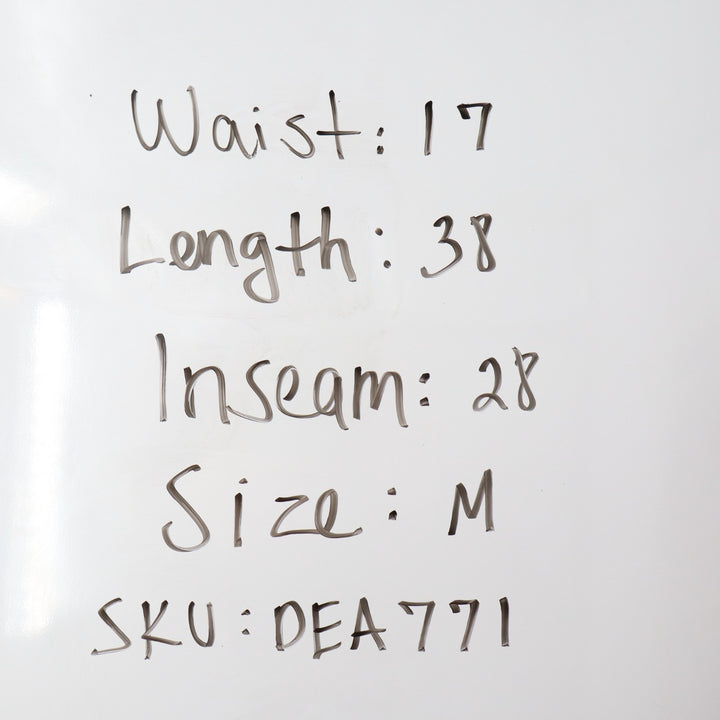 Waist: 17
Length: 38
Inseam: 28
Size: M
SKU: DEA771